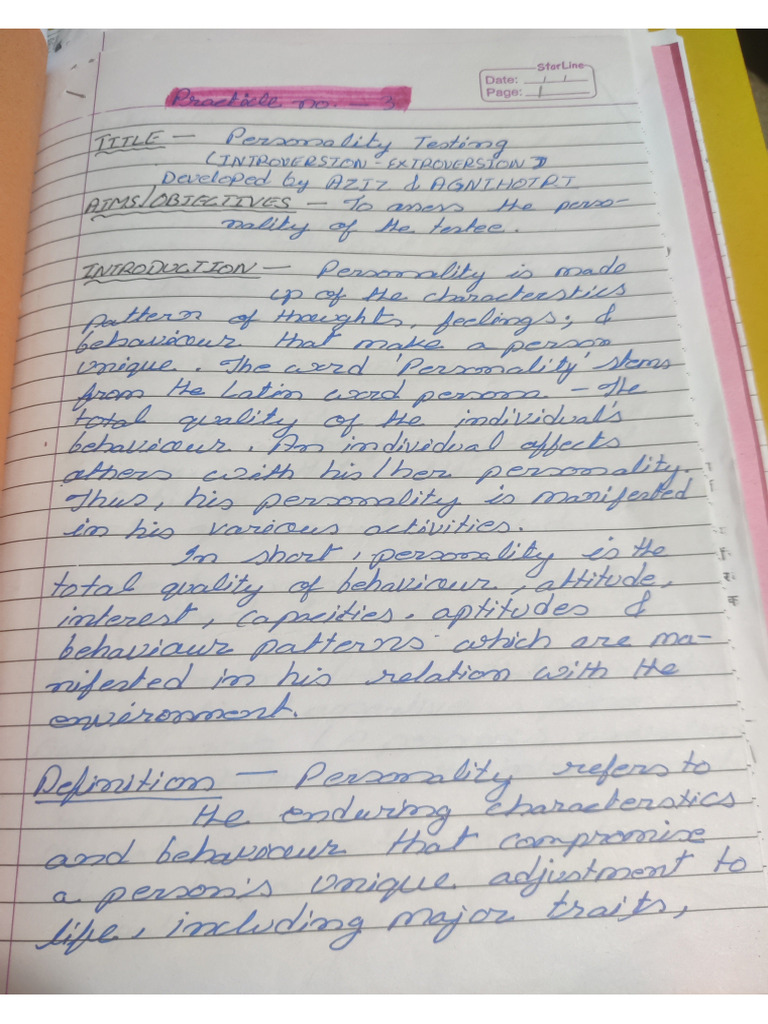 StarLine
Date: / /
Page: 1
Practicle no. - 3
TITLE - Personality Testing
(INTROVERSION - EXTROVERSION)
Developed by AZIZ & AGNIHOTRI
AIMS/OBJECTIVES - To assess the perso-
nality of the testee.
INTRODUCTION - Personality is made
up of the characterstics
pattern of thoughts, feelings, &
behaviour that make a person
unique. The word 'Personality' stems
from the Latin word persona - The
total quality of the individual's
behaviour. An individual affects
others with his/her personality.
Thus, his personality is manifested
in his various activities.
In short, personality is the
total quality of behaviour, attitude,
interest, capacities, aptitudes &
behaviour patterns which are ma-
nifested in his relation with the
environment.
Definition - Personality refers to
the enduring characterstics
and behaviour that compromise
a person's unique adjustment to
life, including major traits,